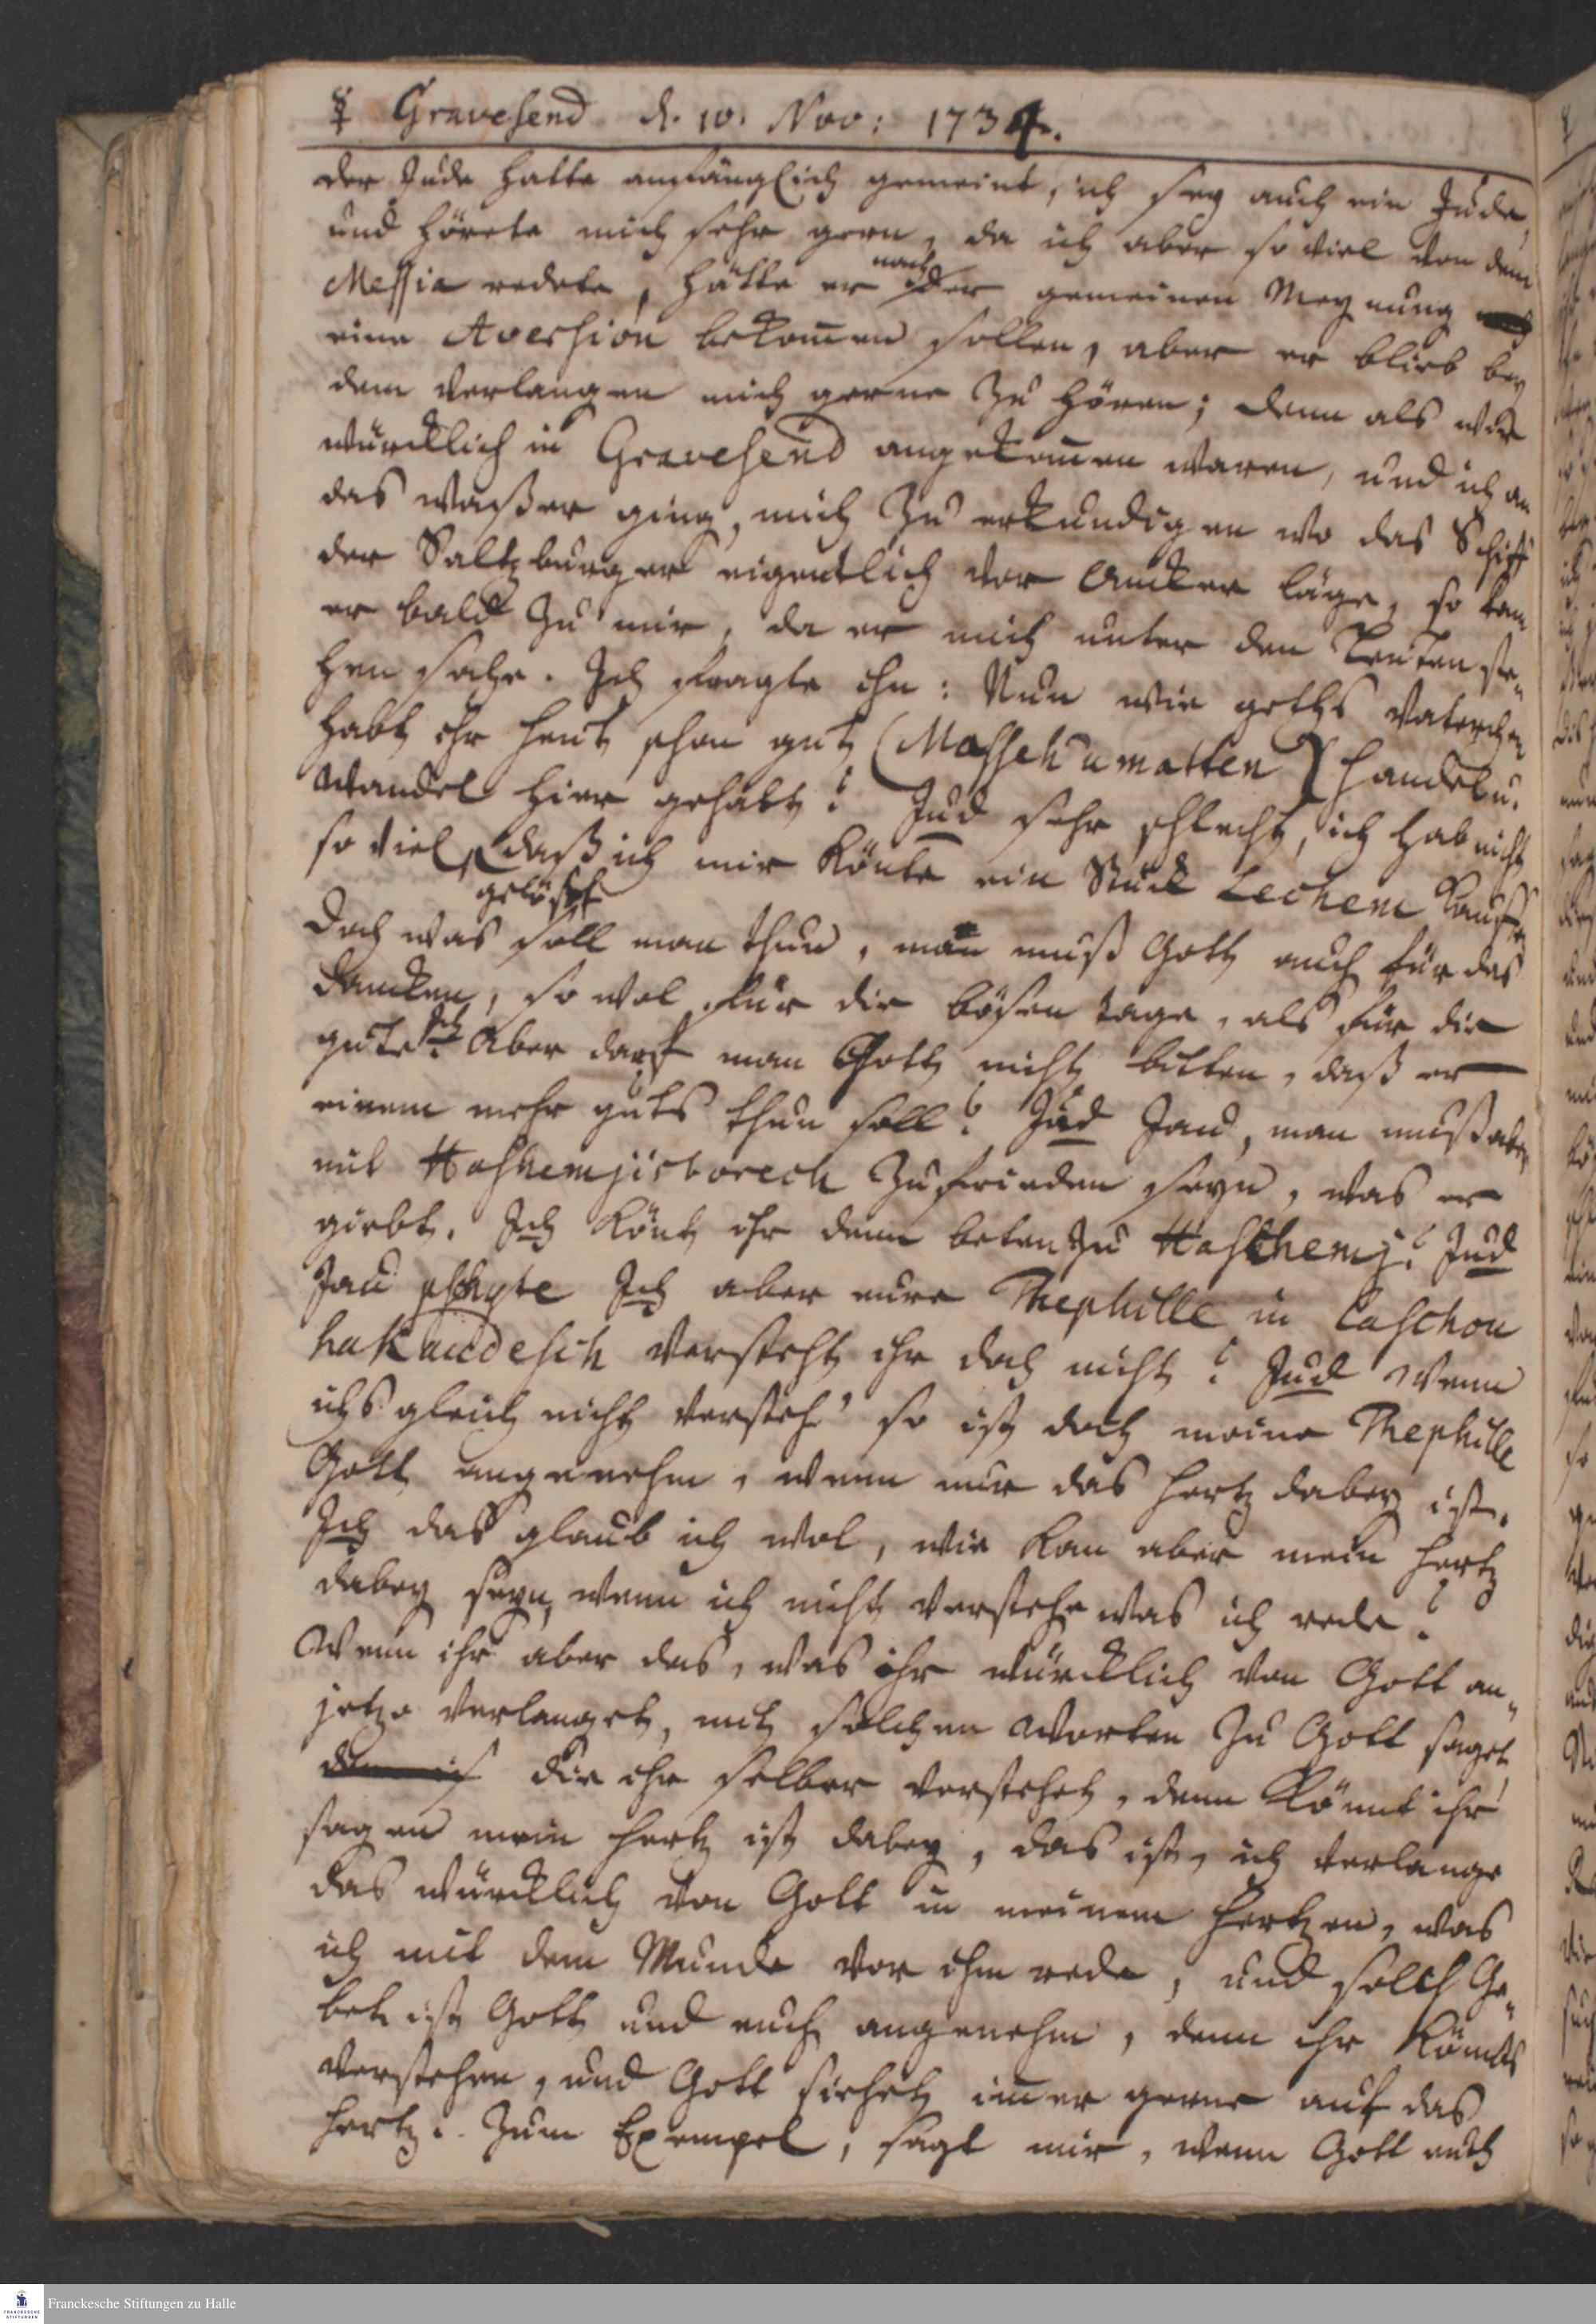 ☿ Gravesend d. 10. Nov: 1734.
der Jude hatte anfänglich gemeint, ich sey auch ein Jude,
und hörete mich sehr gern, da ich aber so viel von dem
Messia redete, hätte er nach der gemeinen Meynung
eine Aversion bekom̅en sollen, aber er blieb bey
dem Verlangen mich gerne zu hören; denn als wir
würcklich in Gravesend angekom̅en waren, und ich an
das waßer ging, mich zu erkundigen wo das Schiff
der Saltzburger eigentlich vor Ancker läge, so kam
er bald zu mir, da er mich unter den Leuten ste„
hen sahe. Ich fragte ihn: Nun wie gehts Vaterchen
habt ihr heut schon gut (Masseh umatten) Handel u.
Wandel hier gehabt? Jud sehr schlecht, ich hab nicht
so viel gelöst daß ich mir könte ein Stück Lechem kauffen
Doch was soll man thun, man muß Gott auch für das
dancken, so wol für die bösen tage, als für die
gute. Ich Aber darf man Gott nicht bitten, daß er
einem mehr guts thun soll? Jud Jau, man muß aber
mit Haschemjisborech zufrieden seyn, was er
giebt. Ich Könt ihr denn beten zu Haschemj? Jud
Jau Ich aber eure Thephille in Laschon
hakaudesch versteht ihr doch nicht? Jud Wenn
ichs gleich nicht versteh' so ist doch meine Thephille
Gott angenehm, wenn nur das Hertz dabey ist.
Ich das glaub ich wol, wie kan aber mein Hertz
dabey seyn, wenn ich nicht verstehe was ich rede?
Wenn ihr aber das, was ihr würcklich von Gott an„
jetzo verlanget, mit solchen Worten zu Gott saget,
die ihr selber verstehet, denn könnt ihr
sagen mein Hertz ist dabey, das ist, ich verlange
das würcklich von Gott in meinem Hertzen, was
ich mit dem Munde vor ihm rede, und solch Ge„
bet ist Gott und euch angenehm, denn ihr könnts
verstehen, und Gott siehet im̅er gerne auf das
Hertz. Zum Exempel, sagt mir, wenn Gott euch
Franckesche Stiftungen zu Halle